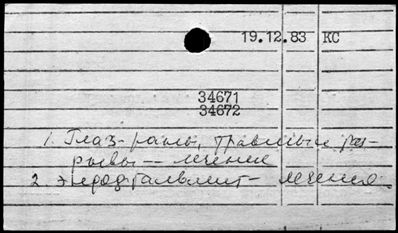 19.12.83 КС
34671
34672
1. Глаз-раны, травмы, раз-
рывы — лечение
2. Эндофтальмит — лечение